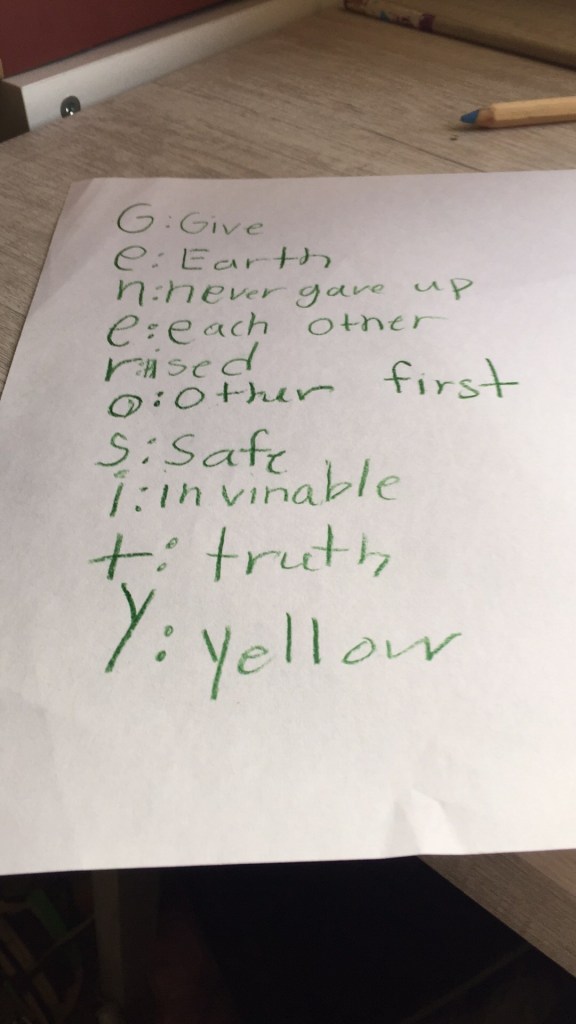 G: Give
e: Earth
n: never gave up
e: each other
raised
o: other first
s: safe
i: invinable
t: truth
y: yellow